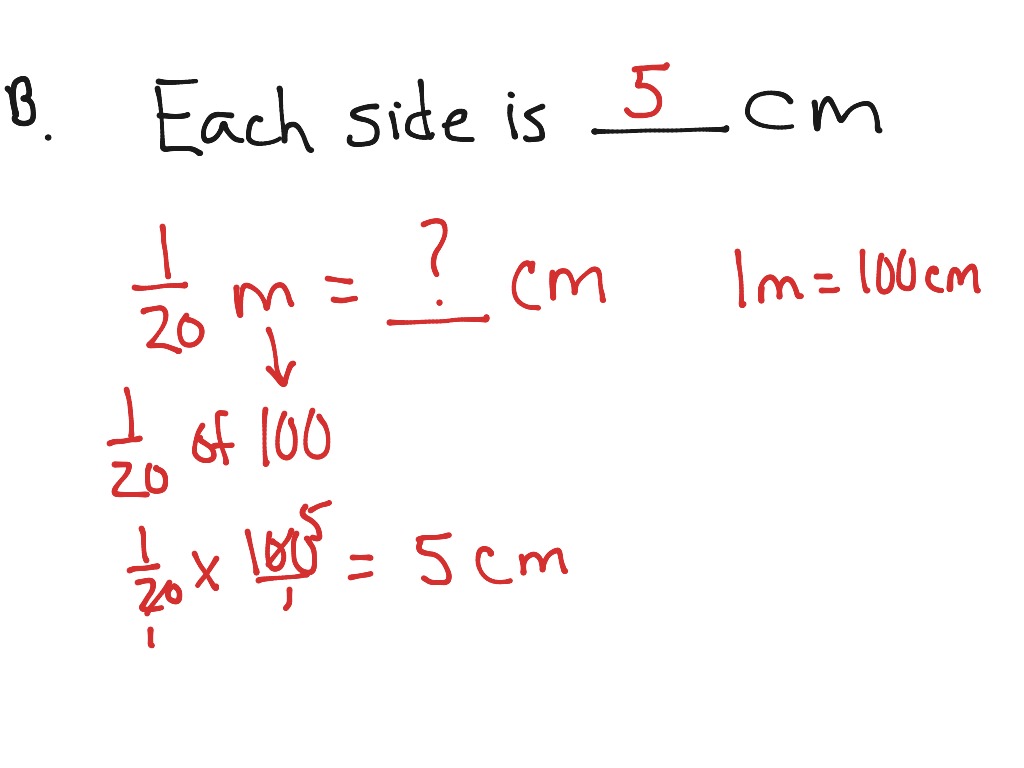 B. Each side is 5 cm
1/20 m = ? cm 1m = 100cm
↓
1/20 of 100
1/20 1 x 100/1 5 = 5 cm